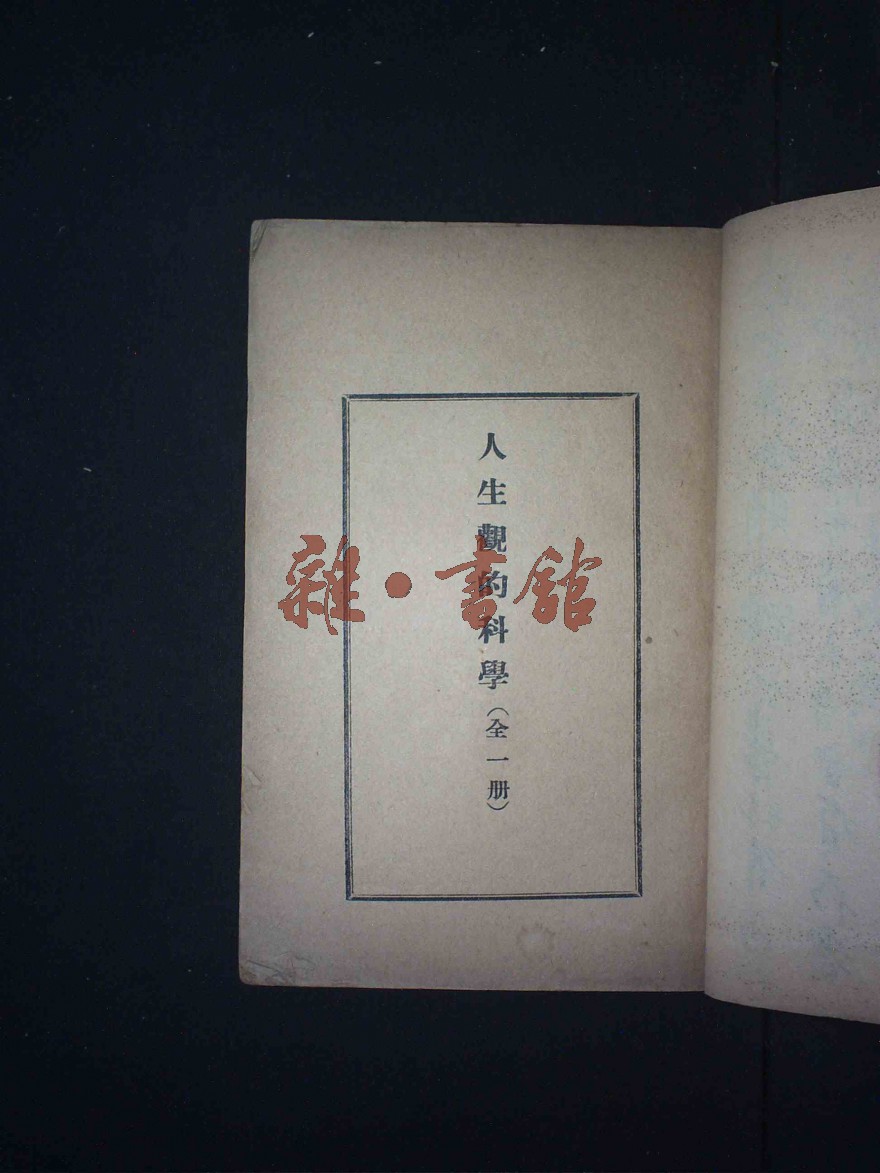 人生觀的科學（全一册）
雜·書館